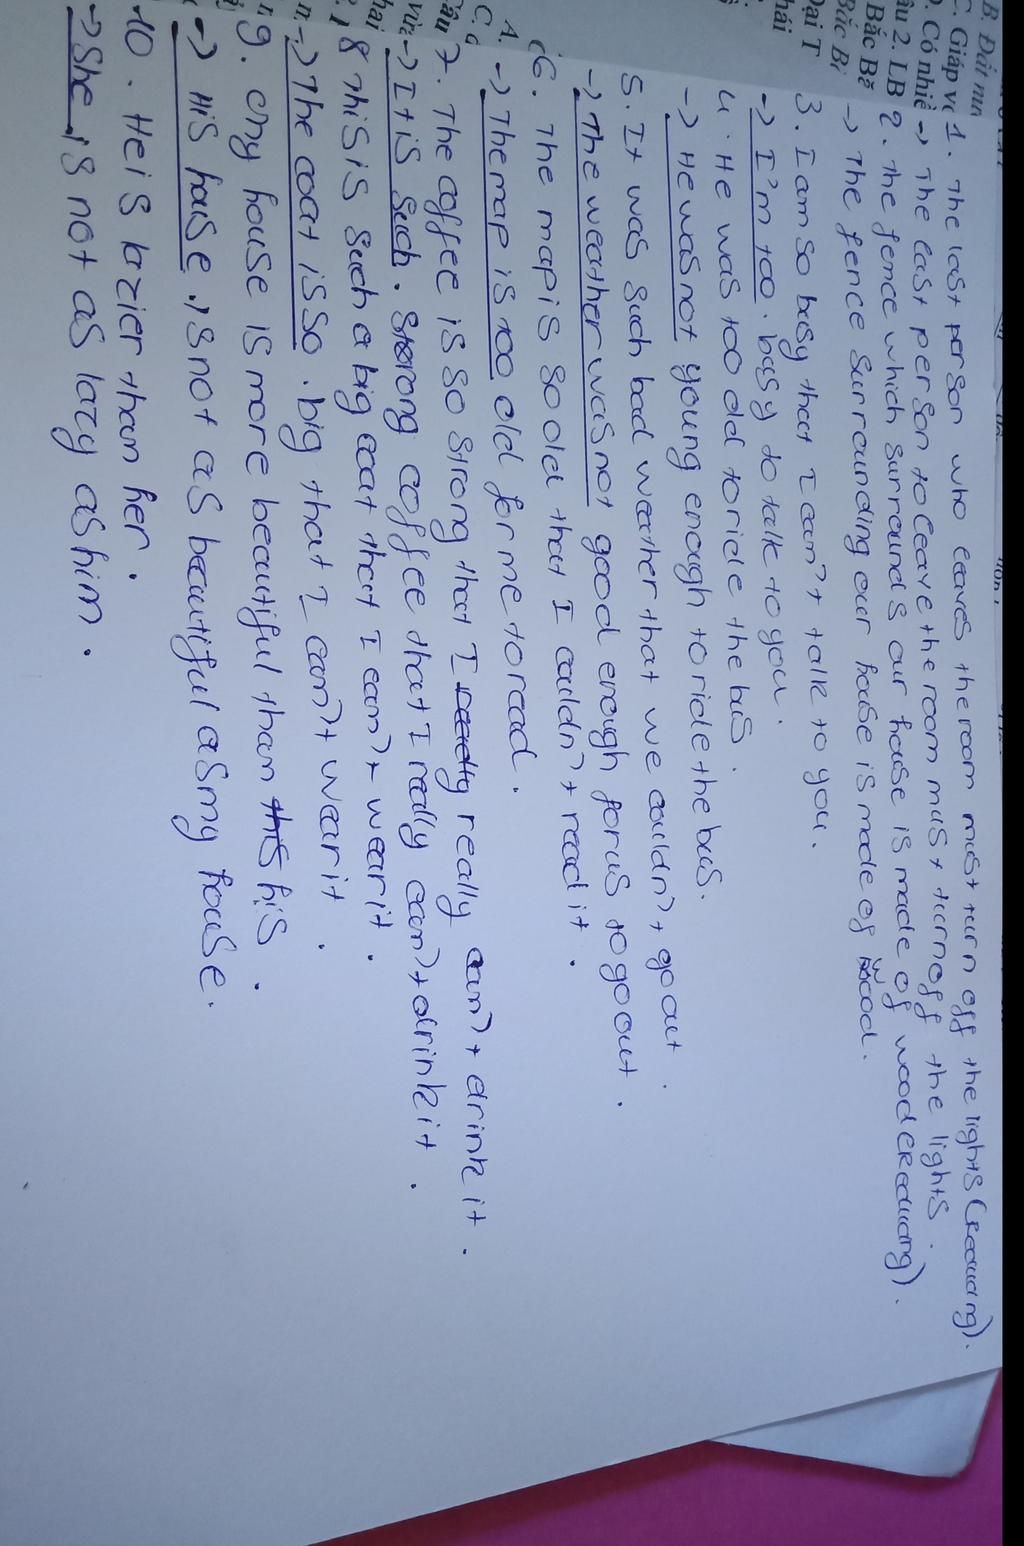 B. Đới nón
C. Giáp vớ
D. Có nhiề
âu 2. LB
Bắc Bộ
Bắc Bì
Đại T
hái
1. The last person who leaves the room must turn off the lights (Reducing).
-> The last person to leave the room must turn off the lights.
2. The fence which surrounds our house is made of wood (Reducing).
-> The fence surrounding our house is made of wood.
3. I am so busy that I can't talk to you.
-> I'm too busy to talk to you.
4. He was too old to ride the bus.
-> He was not young enough to ride the bus.
5. It was such bad weather that we couldn't go out.
-> The weather was not good enough for us to go out.
6. The map is so old that I couldn't read it.
-> The map is too old for me to read.
7. The coffee is so strong that I really can't drink it.
-> It is such strong coffee that I really can't drink it.
8 This is such a big coat that I can't wear it.
-> The coat is so big that I can't wear it.
9. My house is more beautiful than his.
-> His house is not as beautiful as my house.
10. He is lazier than her.
-> She is not as lazy as him.